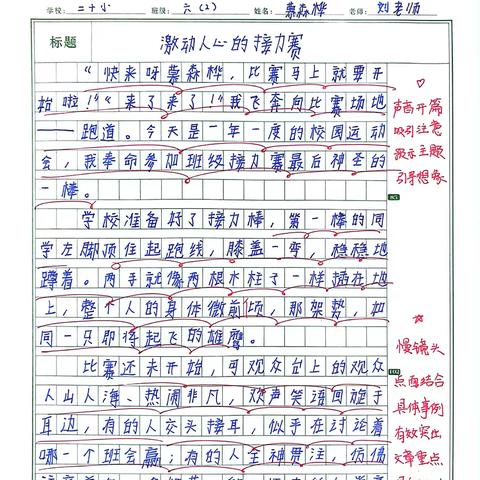 学校：二十小 班级：六(2) 姓名：慕森桦 老师：刘老师
标题 激动人心的接力赛
“快来呀慕森桦，比赛马上就要开
始啦！”“来了来了！”我飞奔向比赛场地
——跑道。今天是一年一度的校园运动
会，我奉命参加班级接力赛最后神圣的
一棒。
学校准备好了接力棒，第一棒的同
学左脚顶住起跑线，膝盖一弯，稳稳地
蹲着。两手就像两根木柱子一样插在地
上，整个人的身体微前倾，那架势，如
同一只即将起飞的雄鹰。
比赛还未开始，可观众台上的观众
人山人海、热闹非凡，欢声笑语回旋于
耳边，有的人交头接耳，似乎在讨论着
哪一个班会赢；有的人全神贯注，仿佛
声音开篇
吸引注意
揭示主题
引导想象
慢镜头
点面结合
具体事例
有效突出
文章重点